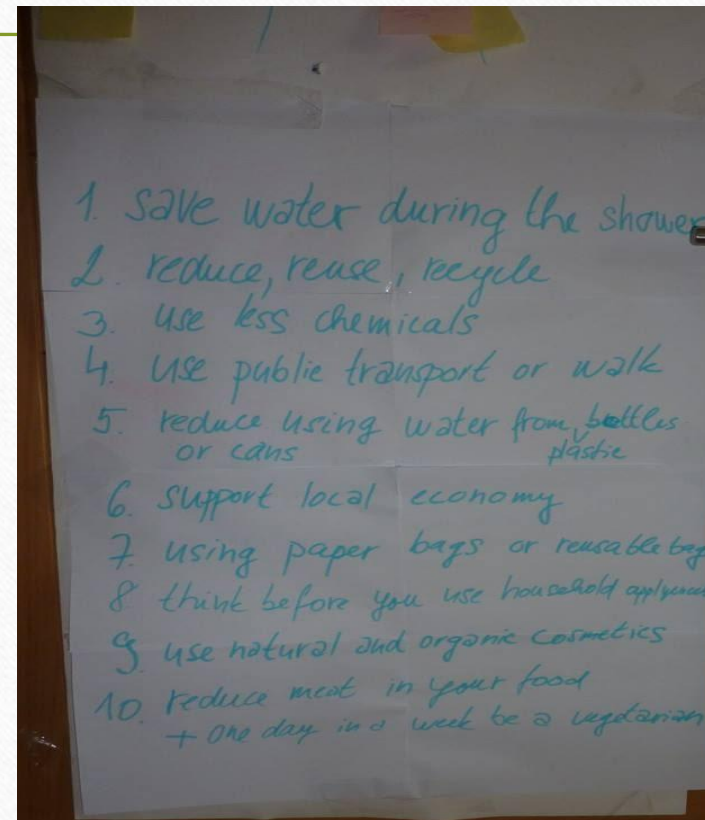 1. save water during the shower
2. reduce, reuse, recycle
3. use less chemicals
4. use public transport or walk
5. reduce using water from plastic bottles
or cans
6. support local economy
7. using paper bags or reusable bag
8 think before you use household
9 use natural and organic cosmetics
10. reduce meat in your food
+ one day in a week be a vegetarian